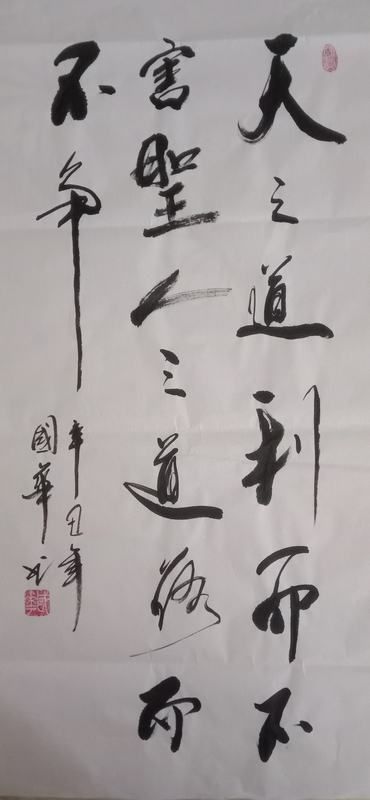 天之道利而不
害聖人之道為而
不争
辛丑年
國華书